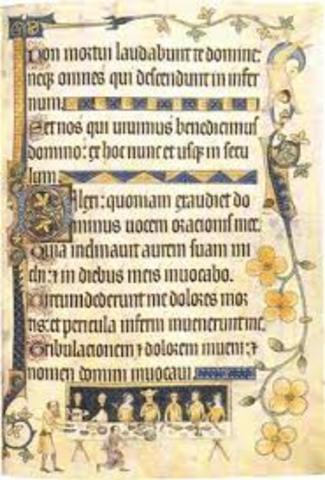 Non mortui laudabunt te domine:
neq; omnes qui descendunt in infer
num.
Set nos qui uiuimus benedicimus
domino: ex hoc nunc et usq; in secu
lum.
Dilexi: quoniam exaudiet do
minus uocem oracionis mee.
Quia inclinauit aurem suam mi
chi: ⁊ in diebus meis inuocabo.
Circumdederunt me dolores mor
tis: et pericula inferni inuenerunt me.
Tribulacionem ⁊ dolorem inueni: ⁊
nomen domini inuocaui.